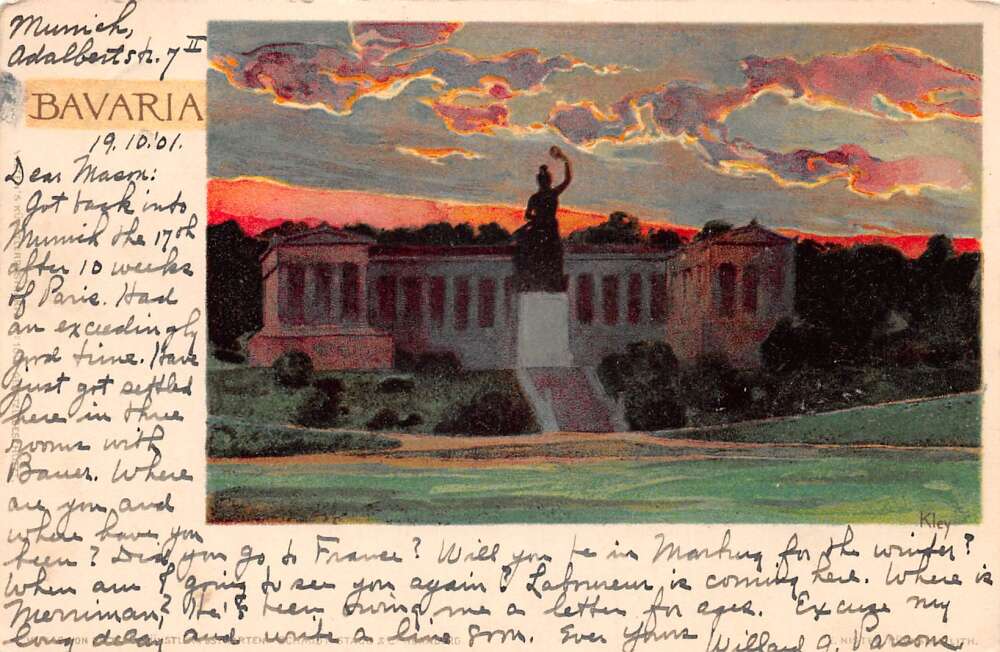 Munich,
Adalbertstr. 7 II
BAVARIA
19.10.'01.
Dear Mason:
Got back into
Munich the 17th
after 10 weeks
of Paris. Had
an exceedingly
good time. Have
just got settled
here in three
rooms with
Bauer. Where
are you, and
where have you
been? Did you go to France? Will you be in Marburg for the winter?
When am I going to see you again? Labriueur is coming here. Where is
Merriman? He's been owing me a letter for ages. Excuse my
long delay and write a line soon. Ever yours
Willard G. Parsons.
Kley